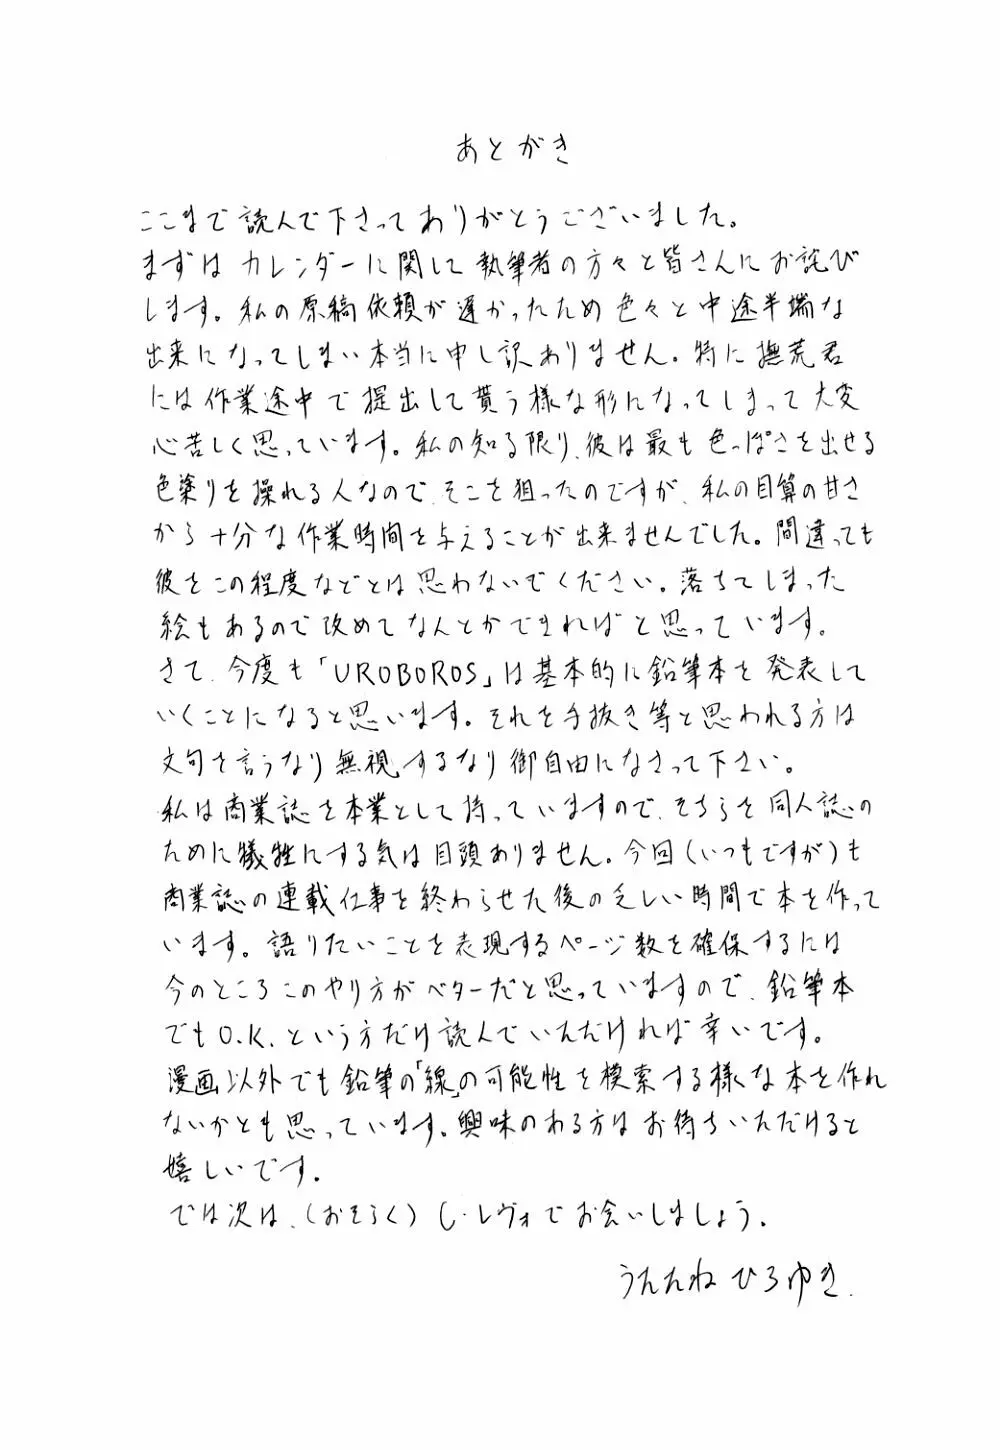 あとがき
ここまで読んで下さってありがとうございました。
まずはカレンダーに関して執筆者の方々と皆さんにお詫び
します。私の原稿依頼が遅かったため色々と中途半端な
出来になってしまい本当に申し訳ありません。特に撫荒君
には作業途中で提出して貰う様な形になってしまって大変
心苦しく思っています。私の知る限り、彼は最も色っぽさを出せる
色塗りを操れる人なので、そこを狙ったのですが、私の目算の甘さ
から十分な作業時間を与えることが出来ませんでした。間違っても
彼をこの程度などとは思わないでください。落ちてしまった
絵もあるので改めてなんとかできればと思っています。
さて、今度も「UROBOROS」は基本的に鉛筆本を発表して
いくことになると思います。それを手抜き等と思われる方は
文句を言うなり無視するなり御自由になさって下さい。
私は商業誌を本業として持っていますので、そちらを同人誌の
ために犠牲にする気は目頭ありません。今回（いつもですが）も
商業誌の連載仕事を終わらせた後の乏しい時間で本を作って
います。語りたいことを表現するページ数を確保するには
今のところこのやり方がベターだと思っていますので、鉛筆本
でもO.K.という方だけ読んでいただければ幸いです。
漫画以外でも鉛筆の「線」の可能性を模索する様な本を作れ
ないかとも思っています。興味のある方はお待ちいただけると
嬉しいです。
では次は、（おそらく）C・レヴォでお会いしましょう。
うたたねひろゆき.